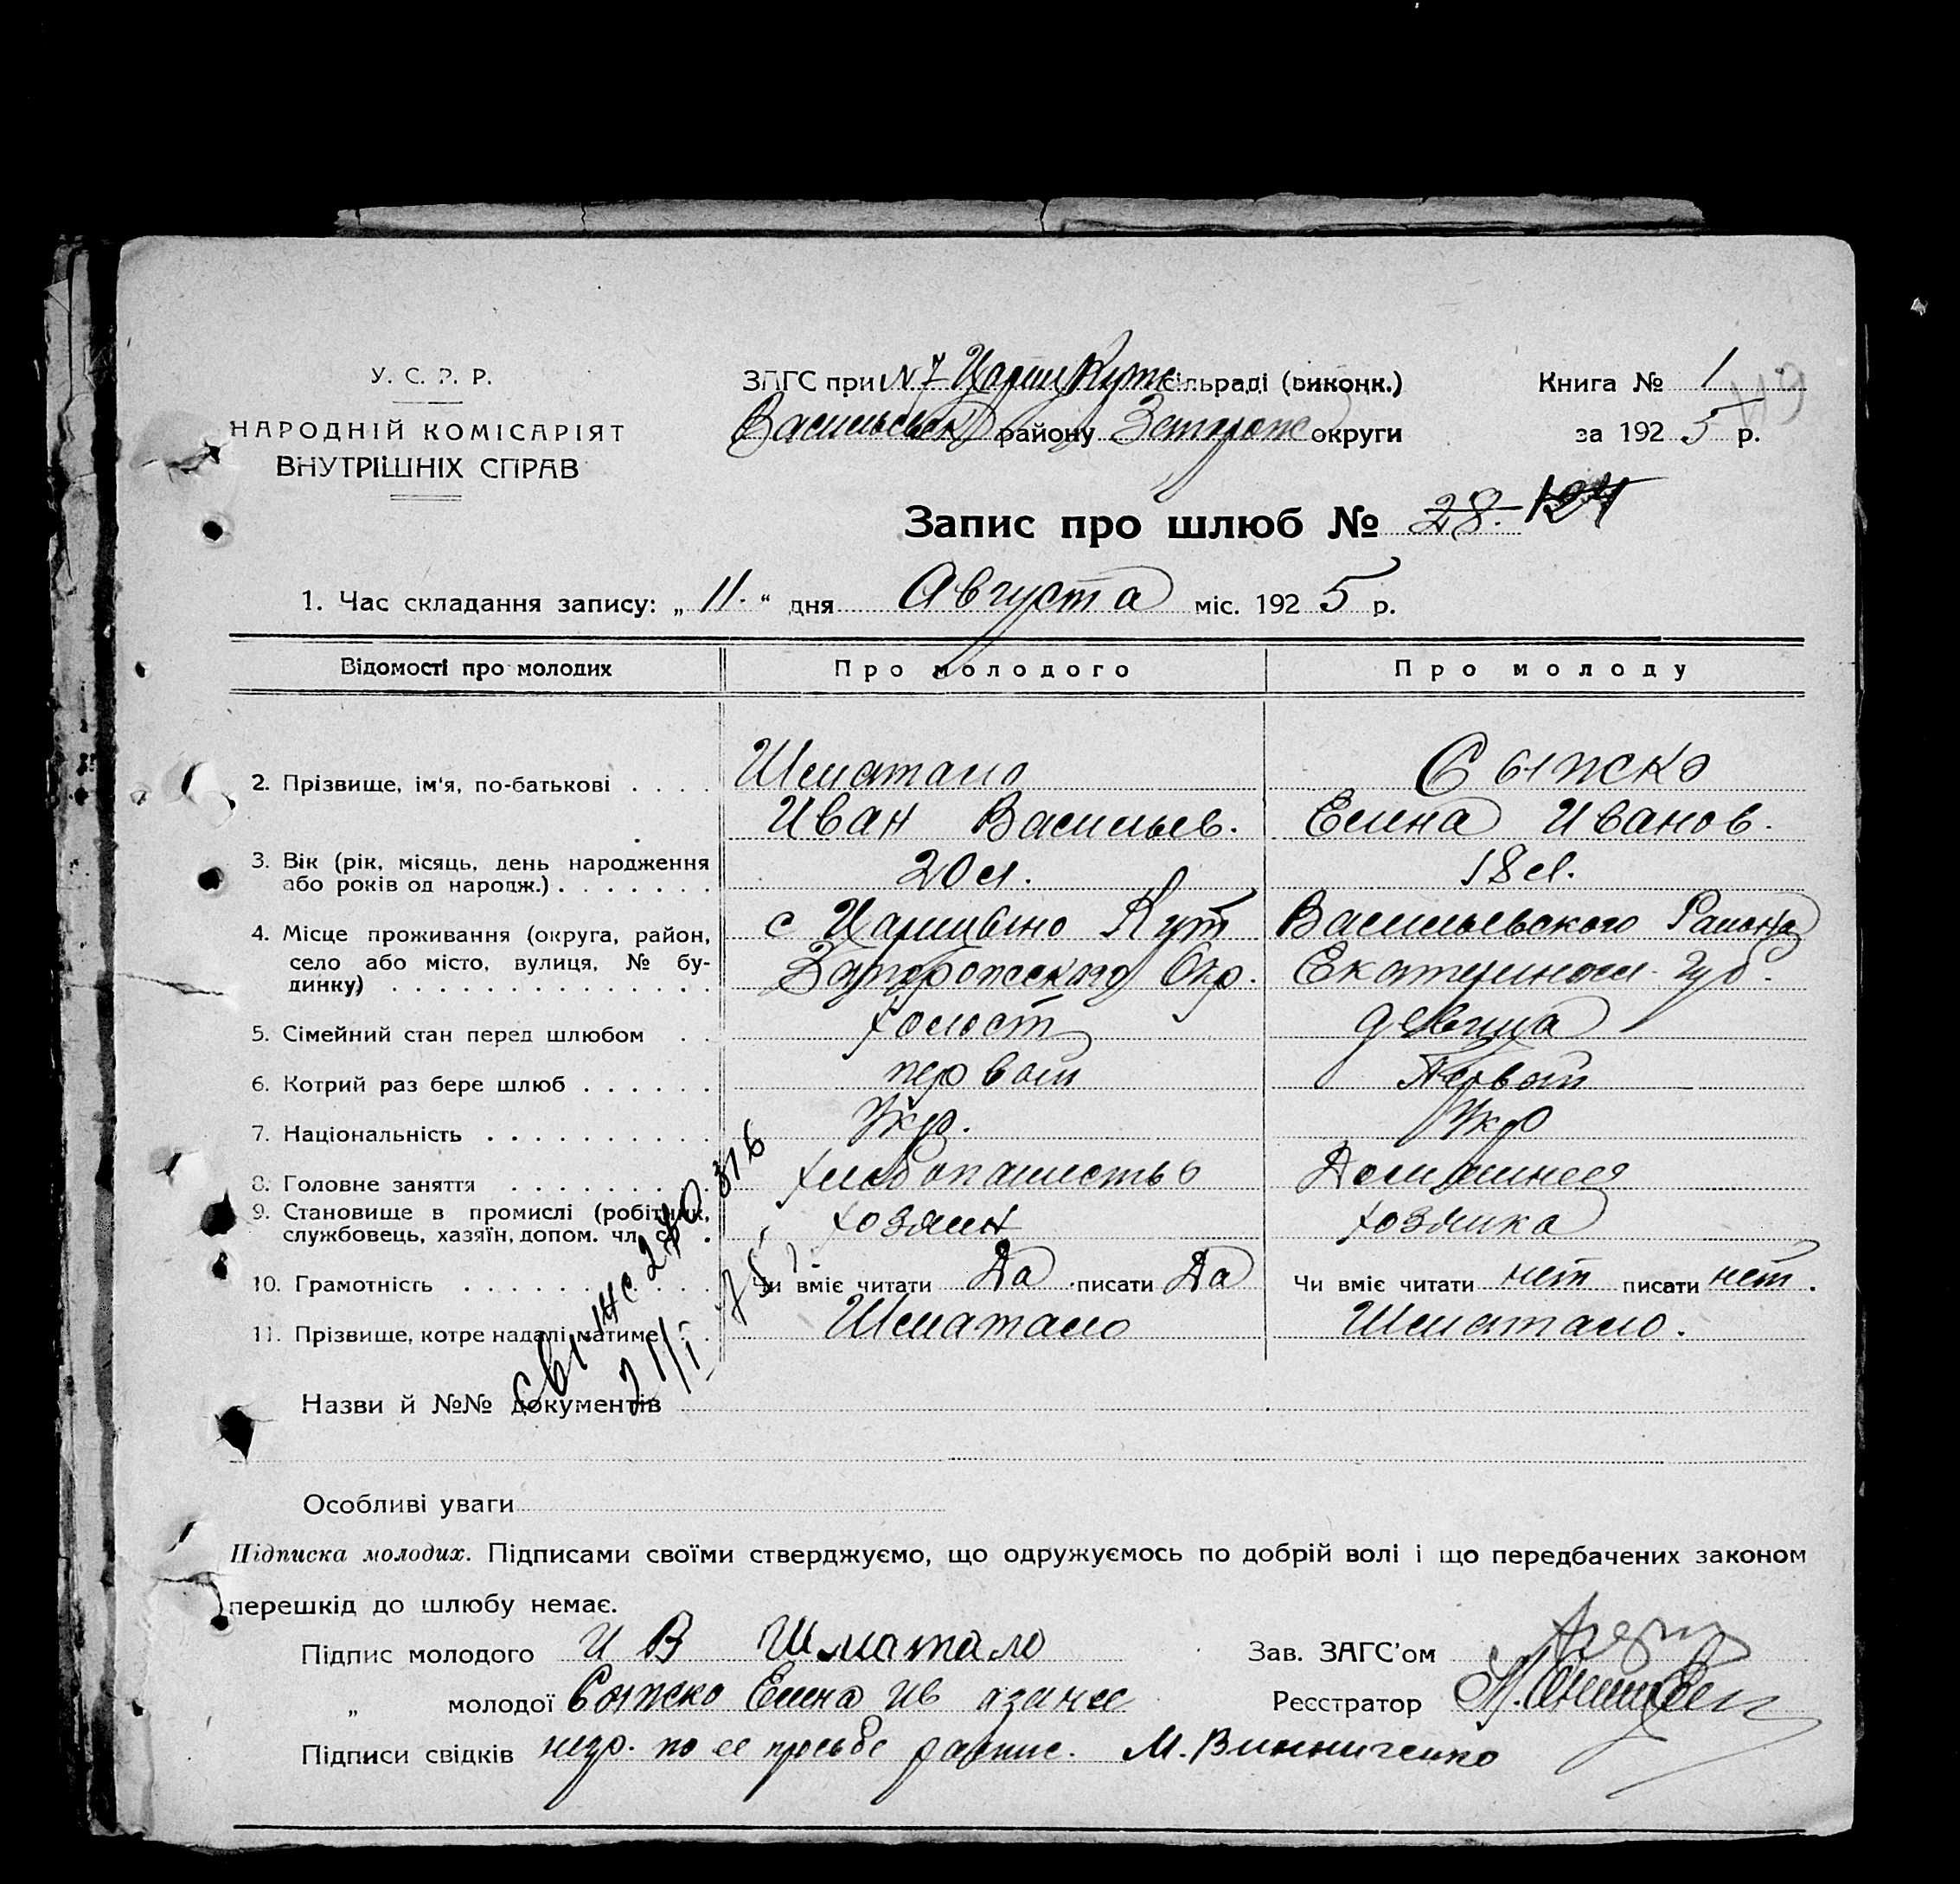 У. С. Р. Р.
НАРОДНІЙ КОМІСАРІЯТ
ВНУТРІШНІХ СПРАВ
ЗАГС при №7 Цариц Кутс сільраді (виконк.)
Васильевск району Запорож округи
Книга № 1
за 1925 р.
Запис про шлюб № 28. 124
1. Час складання запису: „ 11. “ дня Августа міс. 1925 р.
Відомості про молодих Про молодого Про молоду
2. Прізвище, ім'я, по-батькові . . . . Шматало Сыпско
Иван Васильев. Елена Иванов.
3. Вік (рік, місяць, день народження
або років од народж.) . . . . . . . 20 л. 18 л.
4. Місце проживання (округа, район, с Царицыно Кут Васильевского Района
село або місто, вулиця, № бу-
динку) . . . . . . . . . . . . . . Запорожского Окр. Екатеринос. губ.
5. Сімейний стан перед шлюбом . . холост девица
6. Котрий раз бере шлюб . . . . . . первый Первый
7. Національність . . . . . . . . . . Укр. Укр
8. Головне заняття . . . . . . . . . хлебопашество Домашнее
9. Становище в промислі (робітник,
службовець, хазяїн, допом. чл. . хозяин хозяйка
10. Грамотність . . . . . . . . . . . Чи вміє читати Да писати Да Чи вміє читати нет писати нет.
11. Прізвище, котре надалі матиме . . Шматало Шматало.
Назви й №№ документів
Особливі уваги
Підписка молодих. Підписами своїми стверджуємо, що одружуємось по добрій волі і що передбачених законом
перешкід до шлюбу немає.
Підпис молодого И В Шматало Зав. ЗАГС'ом
„ молодої Елена Ив а за нее Реєстратор
Підписи свідків негр. по ее просьбе распис. М. Винниченко